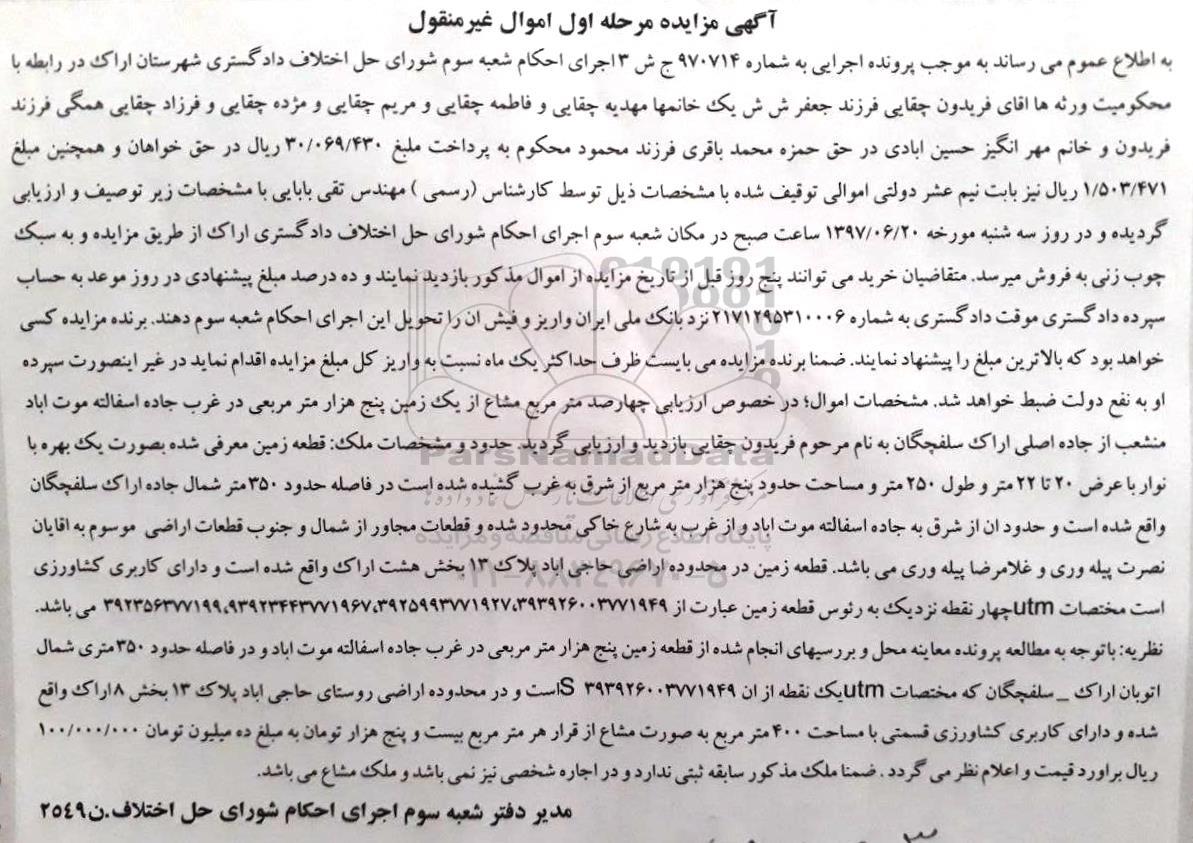 آگهی مزایده مرحله اول اموال غیرمنقول
به اطلاع عموم می رساند به موجب پرونده اجرایی به شماره ۹۷۰۷۱۴ ج ش ۳ اجرای احکام شعبه سوم شورای حل اختلاف دادگستری شهرستان اراک در رابطه با
محکومیت ورثه ها اقای فریدون چقایی فرزند جعفر ش ش یک خانمها مهدیه چقایی و فاطمه چقایی و مریم چقایی و مژده چقایی و فرزاد چقایی همگی فرزند
فریدون و خانم مهر انگیز حسین ابادی در حق حمزه محمد باقری فرزند محمود محکوم به پرداخت ملبغ ۳۰/۰۶۹/۴۳۰ ریال در حق خواهان و همچنین مبلغ
۱/۵۰۳/۴۷۱ ریال نیز بابت نیم عشر دولتی اموالی توقیف شده با مشخصات ذیل توسط کارشناس (رسمی ) مهندس تقی بابایی با مشخصات زیر توصیف و ارزیابی
گردیده و در روز سه شنبه مورخه ۱۳۹۷/۰۶/۲۰ ساعت صبح در مکان شعبه سوم اجرای احکام شورای حل اختلاف دادگستری اراک از طریق مزایده و به سبک
چوب زنی به فروش میرسد. متقاضیان خرید می توانند پنج روز قبل از تاریخ مزایده از اموال مذکور بازدید نمایند و ده درصد مبلغ پیشنهادی در روز موعد به حساب
سپرده دادگستری موقت دادگستری به شماره ۲۱۷۱۲۹۵۳۱۰۰۰۶ نزد بانک ملی ایران واریز و فیش ان را تحویل این اجرای احکام شعبه سوم دهند. برنده مزایده کسی
خواهد بود که بالاترین مبلغ را پیشنهاد نمایند. ضمنا برنده مزایده می بایست ظرف حداکثر یک ماه نسبت به واریز کل مبلغ مزایده اقدام نماید در غیر اینصورت سپرده
او به نفع دولت ضبط خواهد شد. مشخصات اموال؛ در خصوص ارزیابی چهارصد متر مربع مشاع از یک زمین پنج هزار متر مربعی در غرب جاده اسفالته موت اباد
منشعب از جاده اصلی اراک سلفچگان به نام مرحوم فریدون چقایی بازدید و ارزیابی گردید. حدود و مشخصات ملک: قطعه زمین معرفی شده بصورت یک بهره با
نوار با عرض ۲۰ تا ۲۲ متر و طول ۲۵۰ متر و مساحت حدود پنج هزار متر مربع از شرق به غرب گشیده شده است در فاصله حدود ۳۵۰ متر شمال جاده اراک سلفچگان
واقع شده است و حدود ان از شرق به جاده اسفالته موت اباد و از غرب به شارع خاکی محدود شده و قطعات مجاور از شمال و جنوب قطعات اراضی موسوم به اقایان
نصرت پیله وری و غلامرضا پیله وری می باشد. قطعه زمین در محدوده اراضی حاجی اباد پلاک ۱۳ بخش هشت اراک واقع شده است و دارای کاربری کشاورزی
است مختصات utm چهار نقطه نزدیک به رئوس قطعه زمین عبارت از ۳۹۳۹۲۶۰۰۳۷۷۱۹۴۹،۳۹۲۵۹۹۳۷۷۱۹۲۷،۳۹۲۳۴۴۳۷۷۱۹۶۷،۳۹۲۳۵۶۳۷۷۱۹۹۹ می باشد.
نظریه: باتوجه به مطالعه پرونده معاینه محل و بررسیهای انجام شده از قطعه زمین پنج هزار متر مربعی در غرب جاده اسفالته موت اباد و در فاصله حدود ۳۵۰ متری شمال
اتوبان اراک _ سلفچگان که مختصات utm یک نقطه از ان ۳۹۳۹۲۶۰۰۳۷۷۱۹۴۹ S است و در محدوده اراضی روستای حاجی اباد پلاک ۱۳ بخش ۸ اراک واقع
شده و دارای کاربری کشاورزی قسمتی با مساحت ۴۰۰ متر مربع به صورت مشاع از قرار هر متر مربع بیست و پنج هزار تومان به مبلغ ده میلیون تومان ۱۰۰/۰۰۰/۰۰۰
ریال براورد قیمت و اعلام نظر می گردد . ضمنا ملک مذکور سابقه ثبتی ندارد و در اجاره شخصی نیز نمی باشد و ملک مشاع می باشد.
مدیر دفتر شعبه سوم اجرای احکام شورای حل اختلاف.ن۲۵۴۹
ParsNamadData
پایگاه اطلاع رسانی مناقصه و مزایده